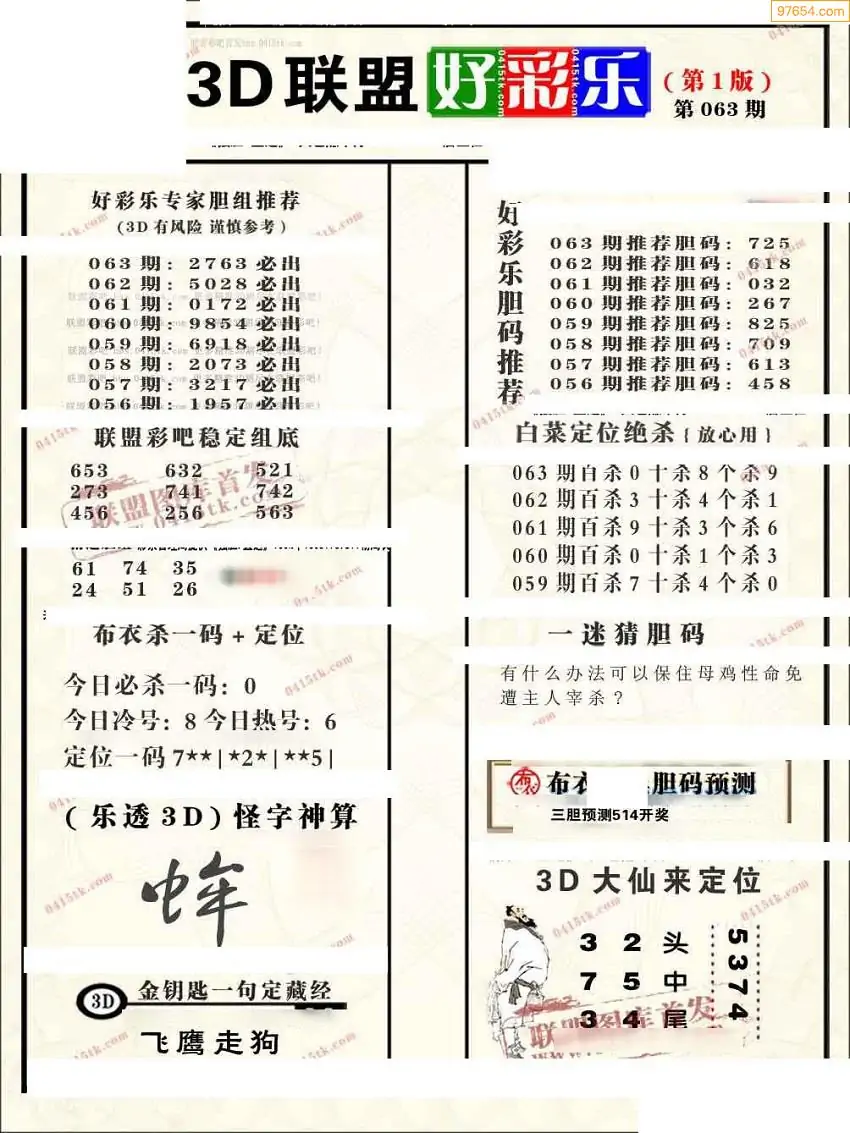 97654.com
3D联盟好彩乐(第1版)
第063期
好彩乐专家胆组推荐
(3D有风险 谨慎参考)
063期: 2763必出
062期: 5028必出
061期: 0172必出
060期: 9854必出
059期: 6918必出
058期: 2073必出
057期: 3217必出
056期: 1957必出
联盟彩吧稳定组底
653 632 521
273 741 742
456 256 563
61 74 35
24 51 26
布衣杀一码+定位
今日必杀一码: 0
今日冷号: 8 今日热号: 6
定位一码 7**|*2*|**5|
(乐透3D)怪字神算
3D 金钥匙一句定藏经
飞鹰走狗
好彩乐胆码推荐
063期推荐胆码: 725
062期推荐胆码: 618
061期推荐胆码: 032
060期推荐胆码: 267
059期推荐胆码: 825
058期推荐胆码: 709
057期推荐胆码: 613
056期推荐胆码: 458
白菜定位绝杀{放心用}
063期百杀0十杀8个杀9
062期百杀3十杀4个杀1
061期百杀9十杀3个杀6
060期百杀0十杀1个杀3
059期百杀7十杀4个杀0
一迷猜胆码
有什么办法可以保住母鸡性命免
遭主人宰杀？
布衣 胆码预测
三胆预测514开奖
3D大仙来定位
3 2 头
7 5 中
3 4 尾
5374
联盟图库首发
0415tk.com